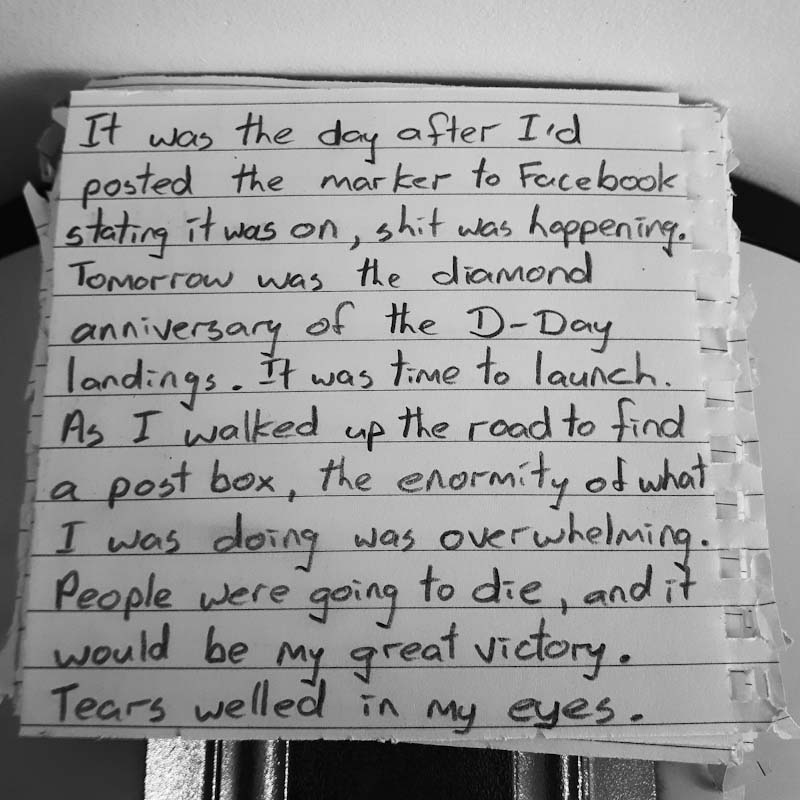 It was the day after I'd
posted the marker to Facebook
stating it was on, shit was happening.
Tomorrow was the diamond
anniversary of the D-Day
landings. It was time to launch.
As I walked up the road to find
a post box, the enormity of what
I was doing was overwhelming.
People were going to die, and it
would be my great victory.
Tears welled in my eyes.